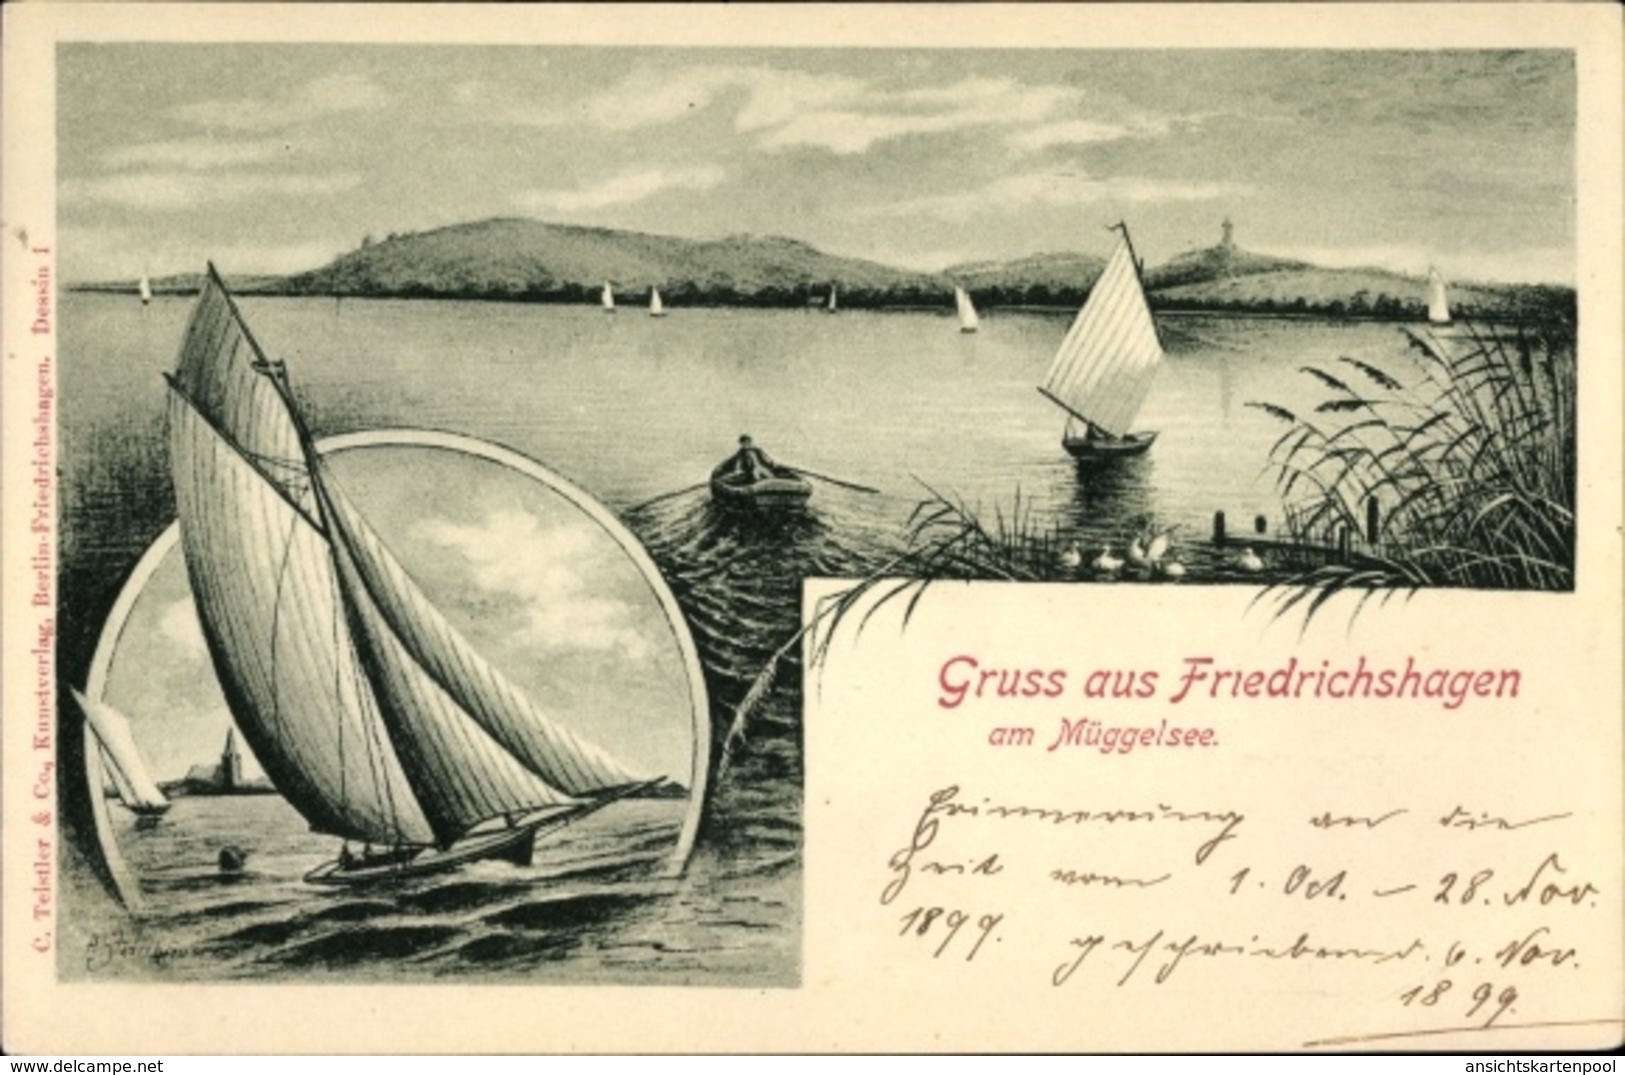 C. Teistler & Co., Kunstverlag, Berlin-Friedrichshagen. Dessin 1
Gruss aus Friedrichshagen
am Müggelsee.
Erinnerung an die
Zeit vom 1. Oct. – 28. Nov.
1899. geschrieben d. 6. Nov.
1899.
www.ansichtskartenpool.de
ansichtskartenpool